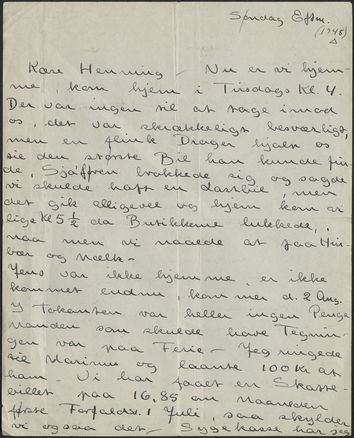 Søndag Eftm.
(1948)
Kære Henning – Nu er vi hjem-
me, kom hjem i Tirsdags Kl. 4.
Der var ingen til at tage imod
os, det var skrækkeligt besværligt,
men en flink Drager hjalp os
til den største Bil han kunde fin-
de, Sjofføren brokkede sig og sagde
vi skulde haft en Lastbil, men
det gik alligevel og hjem kom vi
lige Kl 5 1/2 da Butikkerne lukkede,
naa men vi naaede at faa Hin-
bær og Mælk –
Jens var ikke hjemme, er ikke
kommet endnu, kommer d. 2 Aug.
I Tokanten var heller ingen Penge
Manden som skulde have Tegnin-
gen var paa Ferie – Jeg ringede
til Marinus og laante 100 Kr af
ham. Vi har faaet en Skatte-
billet paa 16,85 om Maaneden
første Forfaldsd. 1 Juli, saa skylder
vi ogsaa det – Sygekasse har jeg